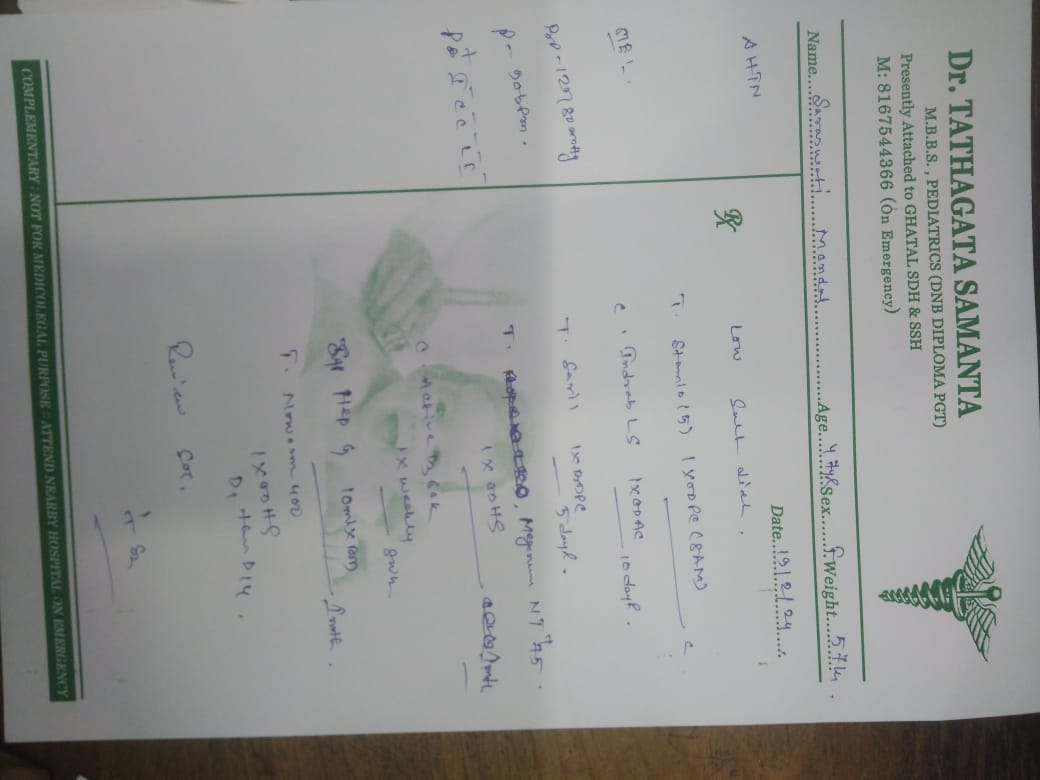 Dr. TATHAGATA SAMANTA
M.B.B.S., PEDIATRICS (DNB DIPLOMA PGT)
Presently Attached to GHATAL SDH & SSH
M: 8167544366 (On Emergency)
Name....Saraswati Mandal....Age....47yr Sex....F Weight....57kg.
Date....19/2/24
AHTN
O/E:-
BP-127/80mmHg
P- 90bpm.
Rx
Low Salt diet.
T. Stamlo (5) 1xODPC (8AM) c
C. Indrab LS 1xODAC 10days.
T. 1xBDPC 5days.
T. Meganeu NT 75.
1xODHS /1mth
C. Active D3 60k
1xweekly 8wk
Syp Hep G 10mlxBD 1mth.
T. 400
1xODHS
D1 to D14.
Review SOS.
COMPLEMENTARY : NOT FOR MEDICOLEGAL PURPOSE : ATTEND NEARBY HOSPITAL ON EMERGENCY